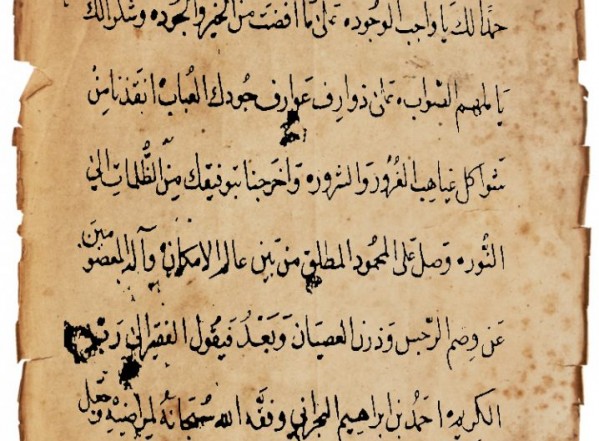 حمدًا لك يا واجب الوجود، على ما أفضت من الخير والجود، وشكرا لك
يا ملهم الصواب، على ذوارف عوارف جودك العباب، أنقذنا من
شواكل غياهب الغرور والشرور، وأخرجنا بتوفيقك من الظلمات إلى
النور، وصل على المحمود المطلق من بين عالم الإمكان، وآله المعصومين
عن وصم الرجس ودرن العصيان، وبعد فيقول الفقير إلى ربه
الكريم، أحمد بن إبراهيم البحراني وفقه الله سبحانه لمراضيه وجعل